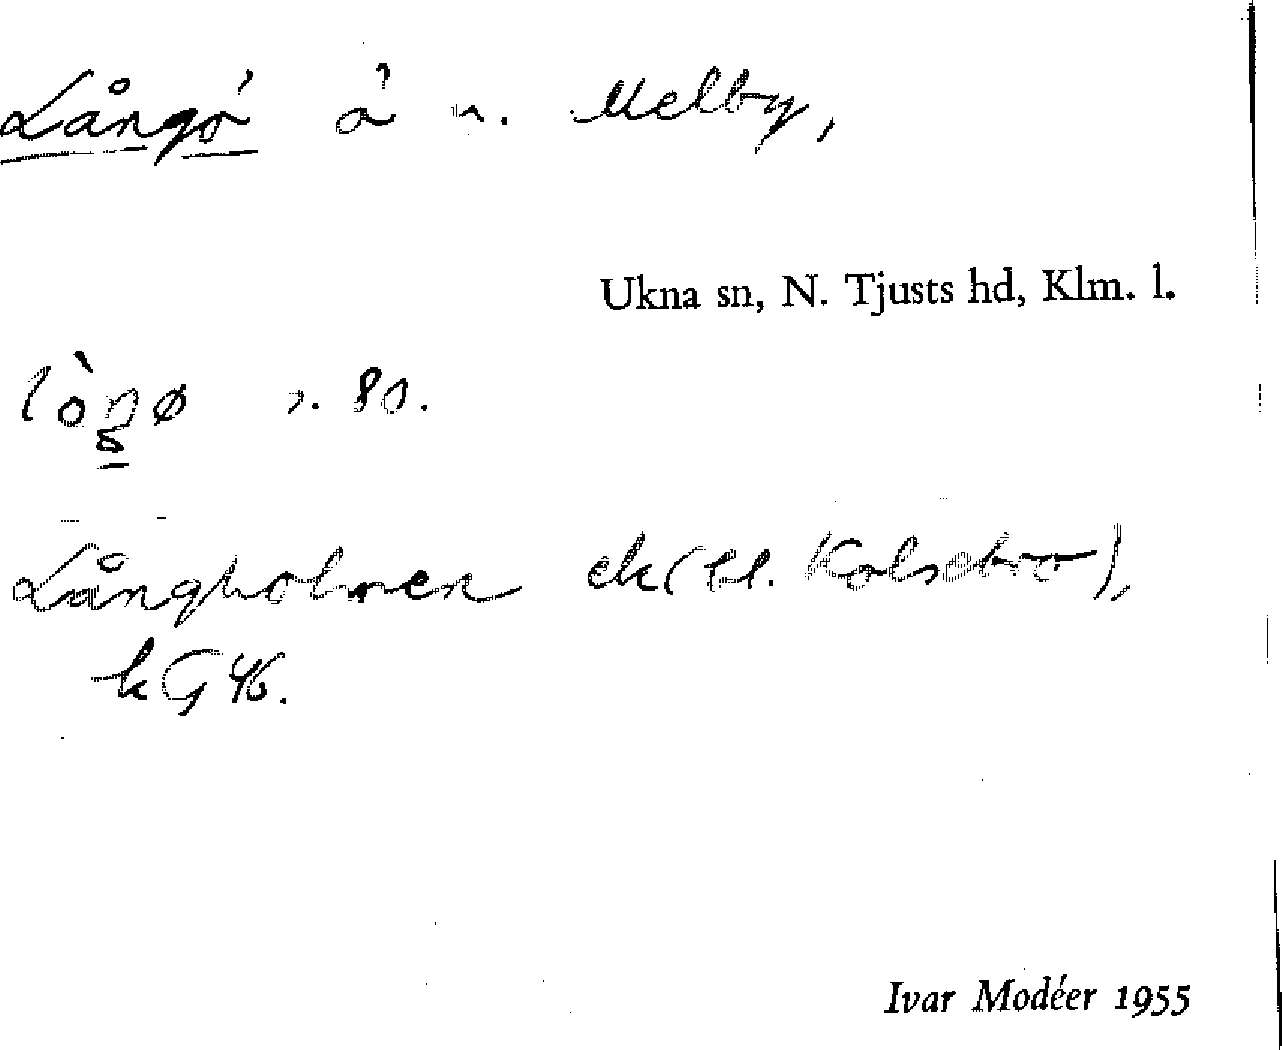 Långö ö n. Melby,
Ukna sn, N. Tjusts hd, Klm. l.
lòŋø s. 80.
Långholmen ek (tl. Kolsebro),
k G 46.
Ivar Modéer 1955